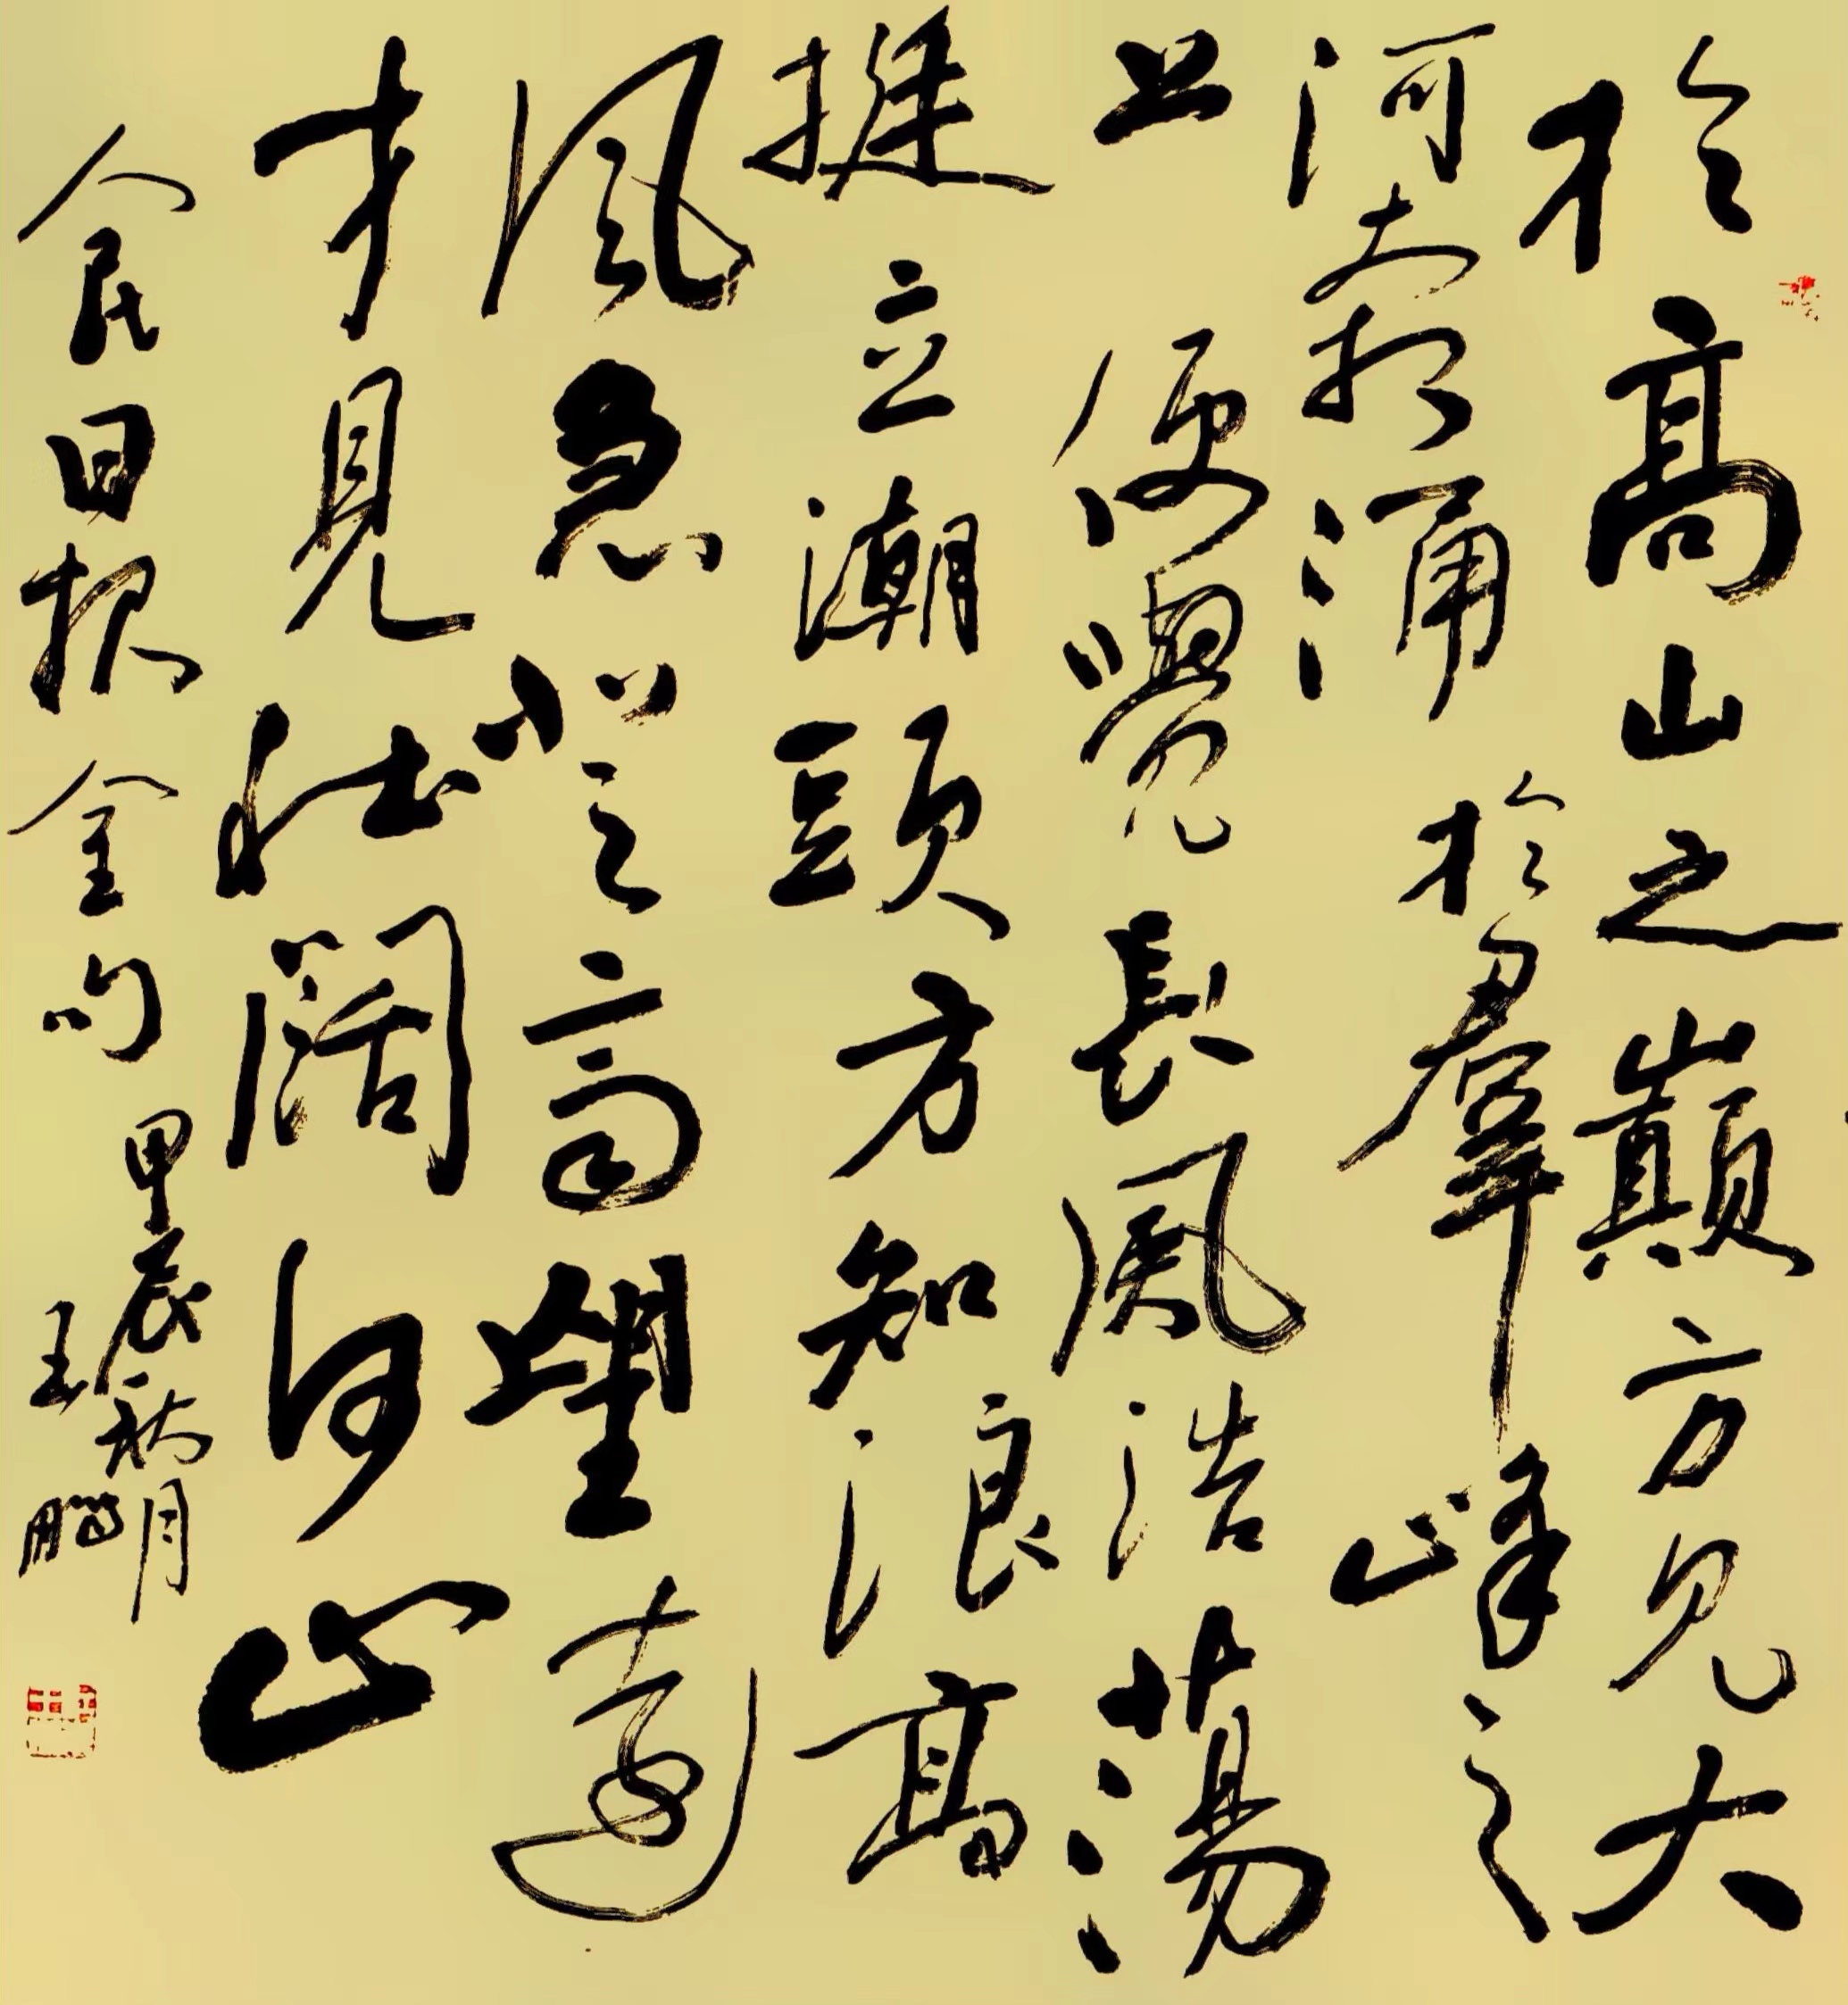 於高山之巔方見大
河奔涌於羣峰之
上便覺長風浩蕩
挺立潮頭方知浪高
風急登高望遠
才見壯闊河山
人民日报金句 甲辰秋月
王鵬